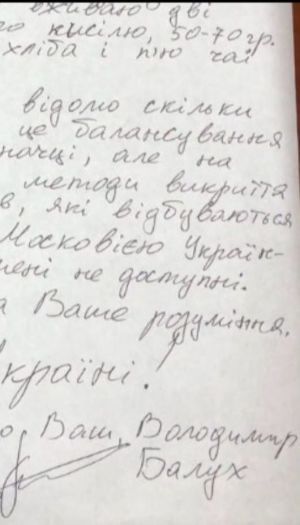 вживаю дві
го кисілю, 50-70 гр.
хліба і п'ю чай
відомо скільки
це балансування
начці, але на
методи викриття
в, які відбуваються
Московією Україн-
мені не доступні.
а Ваше розуміння.
країні!
о Ваш, Володимир
Балух